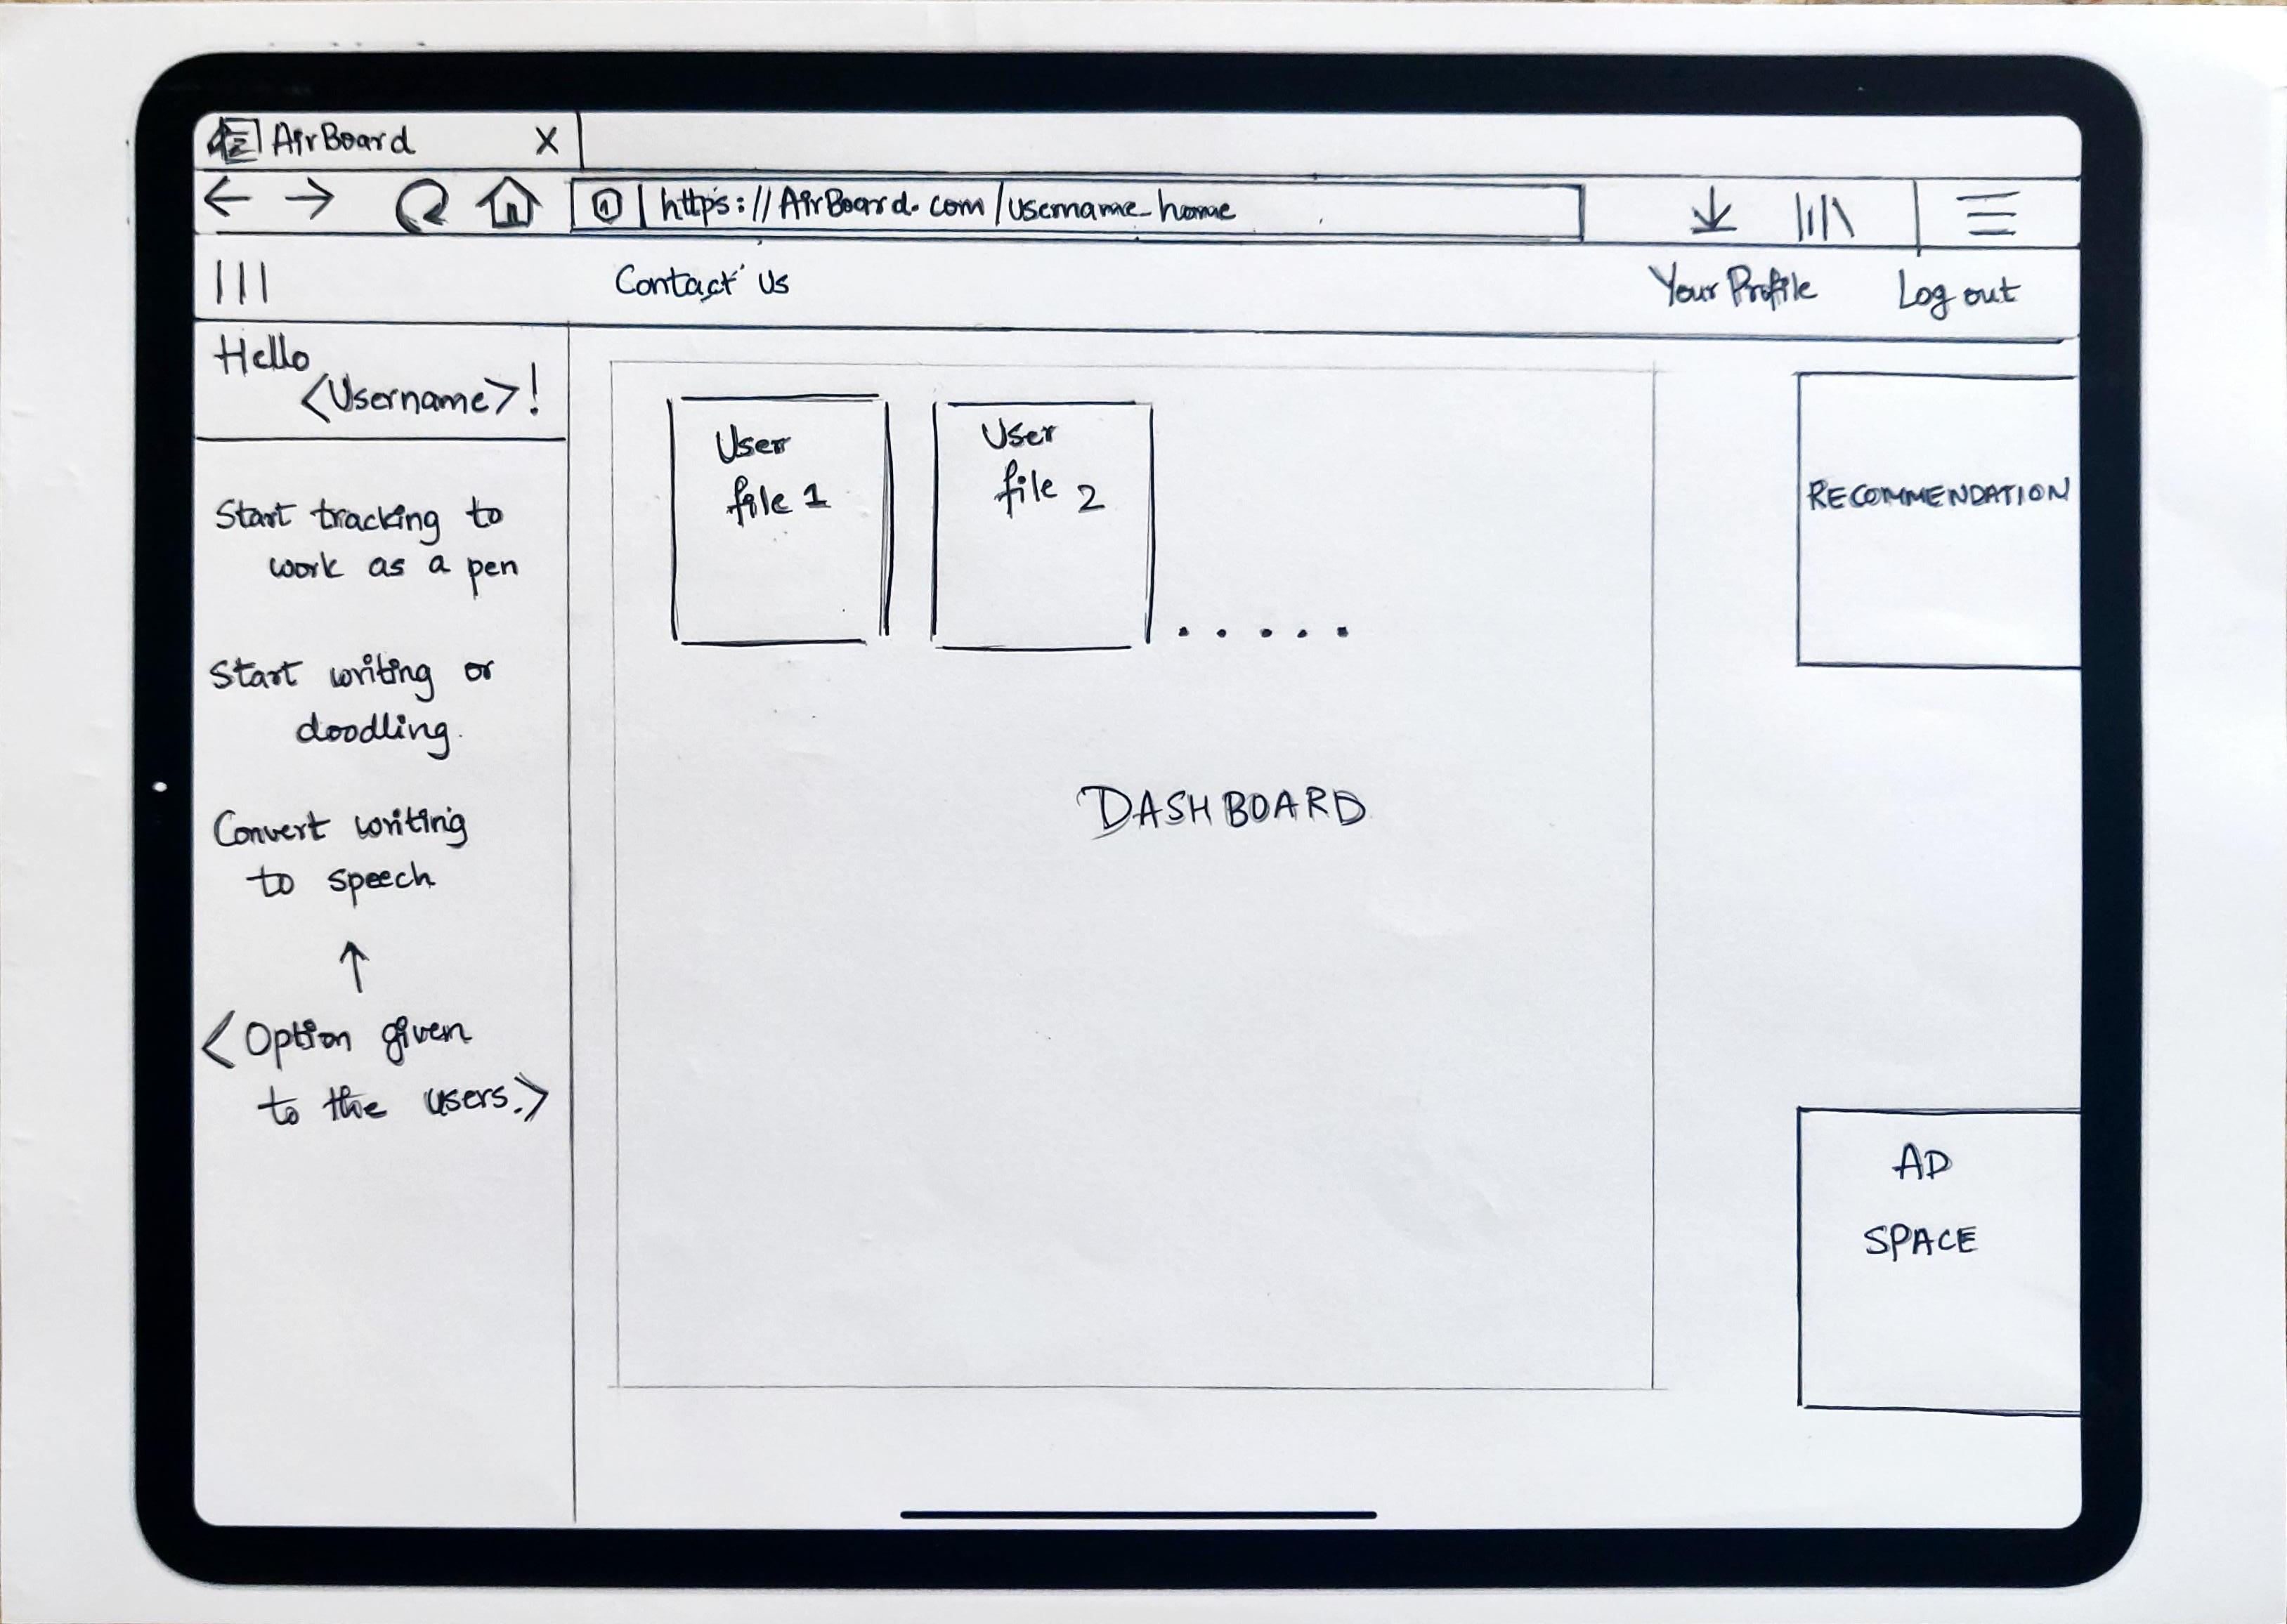 AirBoard X
https://AirBoard.com/username_home
Contact Us Your Profile Log out
Hello
<Username>!
Start tracking to
work as a pen
Start writing or
doodling.
Convert writing
to speech
<Option given
to the users.>
User
file 1
User
file 2
.....
DASHBOARD
RECOMMENDATION
AD
SPACE